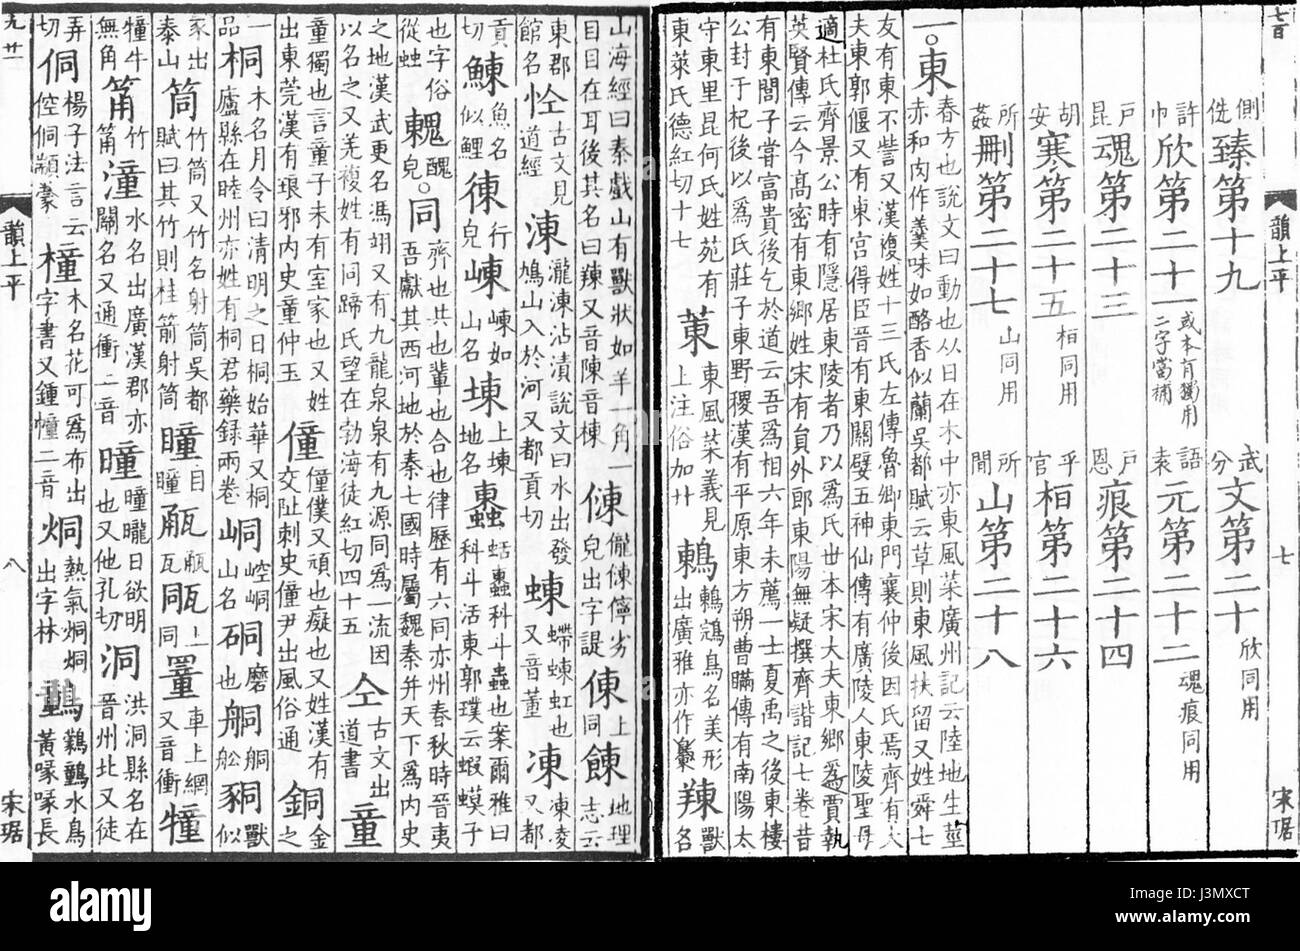 七百
韻上平 七 宋琚
側侁臻第十九 武分文第二十 欣同用
許巾欣第二十一 或本肓獨用二字當補 語袁元第二十二 魂痕同用
戶昆魂第二十三 戶恩痕第二十四
胡安寒第二十五 桓同用 乎官桓第二十六
所姦刪第二十七 山同用 所閒山第二十八
一。東 春方也說文曰動也从日在木中亦東風菜廣州記云陸地生莖
赤和肉作羹味如酪香似蘭吳都賦云草則東風扶留又姓舜七
友有東不訾又漢複姓十三氏左傳魯卿東門襄仲後因氏焉齊有大
夫東郭偃又有東宮得臣晉有東關嬖五神仙傳有廣陵人東陵聖母
適杜氏齊景公時有隱居東陵者乃以爲氏世本宋大夫東鄉爲賈執
英賢傳云今高密有東鄉姓宋有員外郎東陽無疑撰齊諧記七卷昔
有東閭子嘗富貴後乞於道云吾爲相六年未薦一士夏禹之後東樓
公封于杞後以爲氏莊子東野稷漢有平原東方朔曹瞞傳有南陽太
守東里昆何氏姓苑有東萊氏德紅切十七 菄 東風菜義見上注俗加艹 鶇 鶇鵍鳥名美形出廣雅亦作 䍶 獸名
山海經曰秦戲山有獸狀如羊一角一
目目在耳後其名曰䍶又音陳音棟 倲 儱倲儜劣皃出字諟 上同 餗 地理志云
東郡館名 㤏 古文見道經 涷 瀧涷沾漬說文曰水出發鳩山入於河又都貢切 蝀 螮蝀虹也又音董 凍 凍凌又都
貢切 鯟 魚名似鯉 徚 行皃 崠 崠如山名 埬 上埬地名 𧓕 蛞𧓕科斗蟲也案爾雅曰科斗活東郭璞云蝦蟆子
也字俗從䖝 𩳣 醜皃 。同 齊也共也輩也合也律歷有六同亦州春秋時晉夷吾獻其西河地於秦七國時屬魏秦并天下爲內史
之地漢武更名馮翊又有九龍泉泉有九源同爲一流因以名之又羌複姓有同蹄氏望在勃海徒紅切四十五 仝 古文出道書 童
童獨也言童子未有室家也又姓出東莞漢有琅邪內史童仲玉 僮 僮僕又頑也癡也又姓漢有交阯刺史僮尹出風俗通 銅 金之
一品 桐 木名月令曰清明之日桐始華又桐廬縣在睦州亦姓有桐君藥錄兩卷 峒 崆峒山名 硐 磨也 䑆 䑆舩 狪 獸似
豕出泰山 筒 竹筒又竹名射筒吳都賦曰其竹則桂箭射筒 瞳 目瞳 㼧 㼧瓦 上同 罿 車上網又音衝 犝
犝牛無角 筩 竹筩 潼 水名出廣漢郡亦關名又通衝二音 曈 曈曨日欲明也又他孔切 洞 洪洞縣名在晉州北又徒
弄切 侗 楊子法言云倥侗顓蒙 橦 木名花可爲布出字書又鍾幢二音 烔 熱氣烔烔出字林 水鳥黃喙喙長
韻上平 八 宋琚
J3MXCT
alamy
www.alamy.com